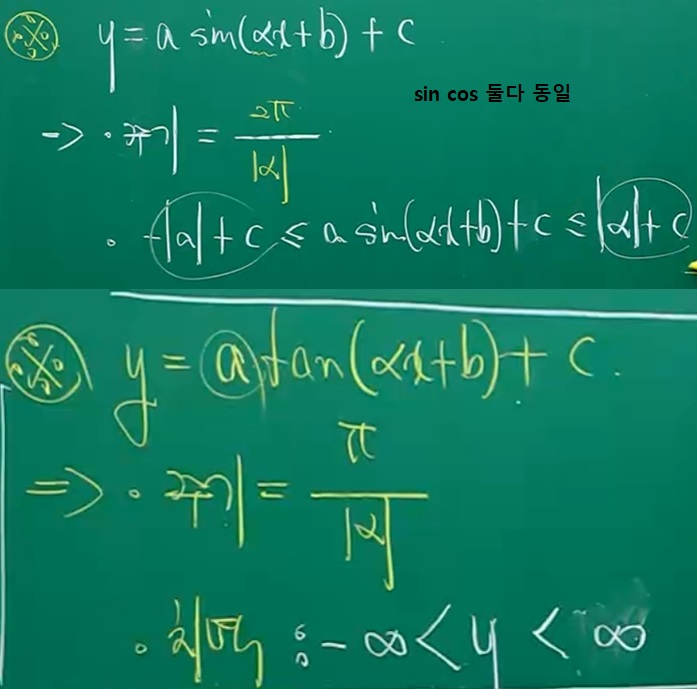 y = a sin(αx+b) + c
sin cos 둘다 동일
-> · 주기 = 2π / |α|
· -|a| + c ≤ a sin(αx+b) + c ≤ |α| + c
y = a tan(αx+b) + c.
=> · 주기 = π / |α|
· 치역 : -∞ < y < ∞